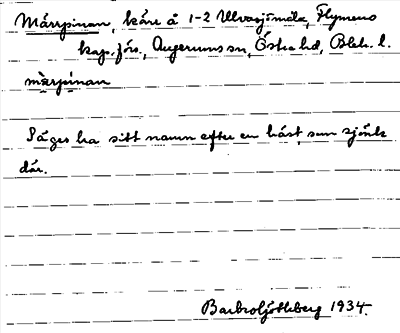 Märrpinan, kärr å 1-2 Ulvasjömåla, Flymens
kap.förs., Augerums sn, Östra hd, Blek. l.
mærpinan
Säges ha sitt namn efter en häst, som sjönk
där.
Barbro Götleberg 1934.